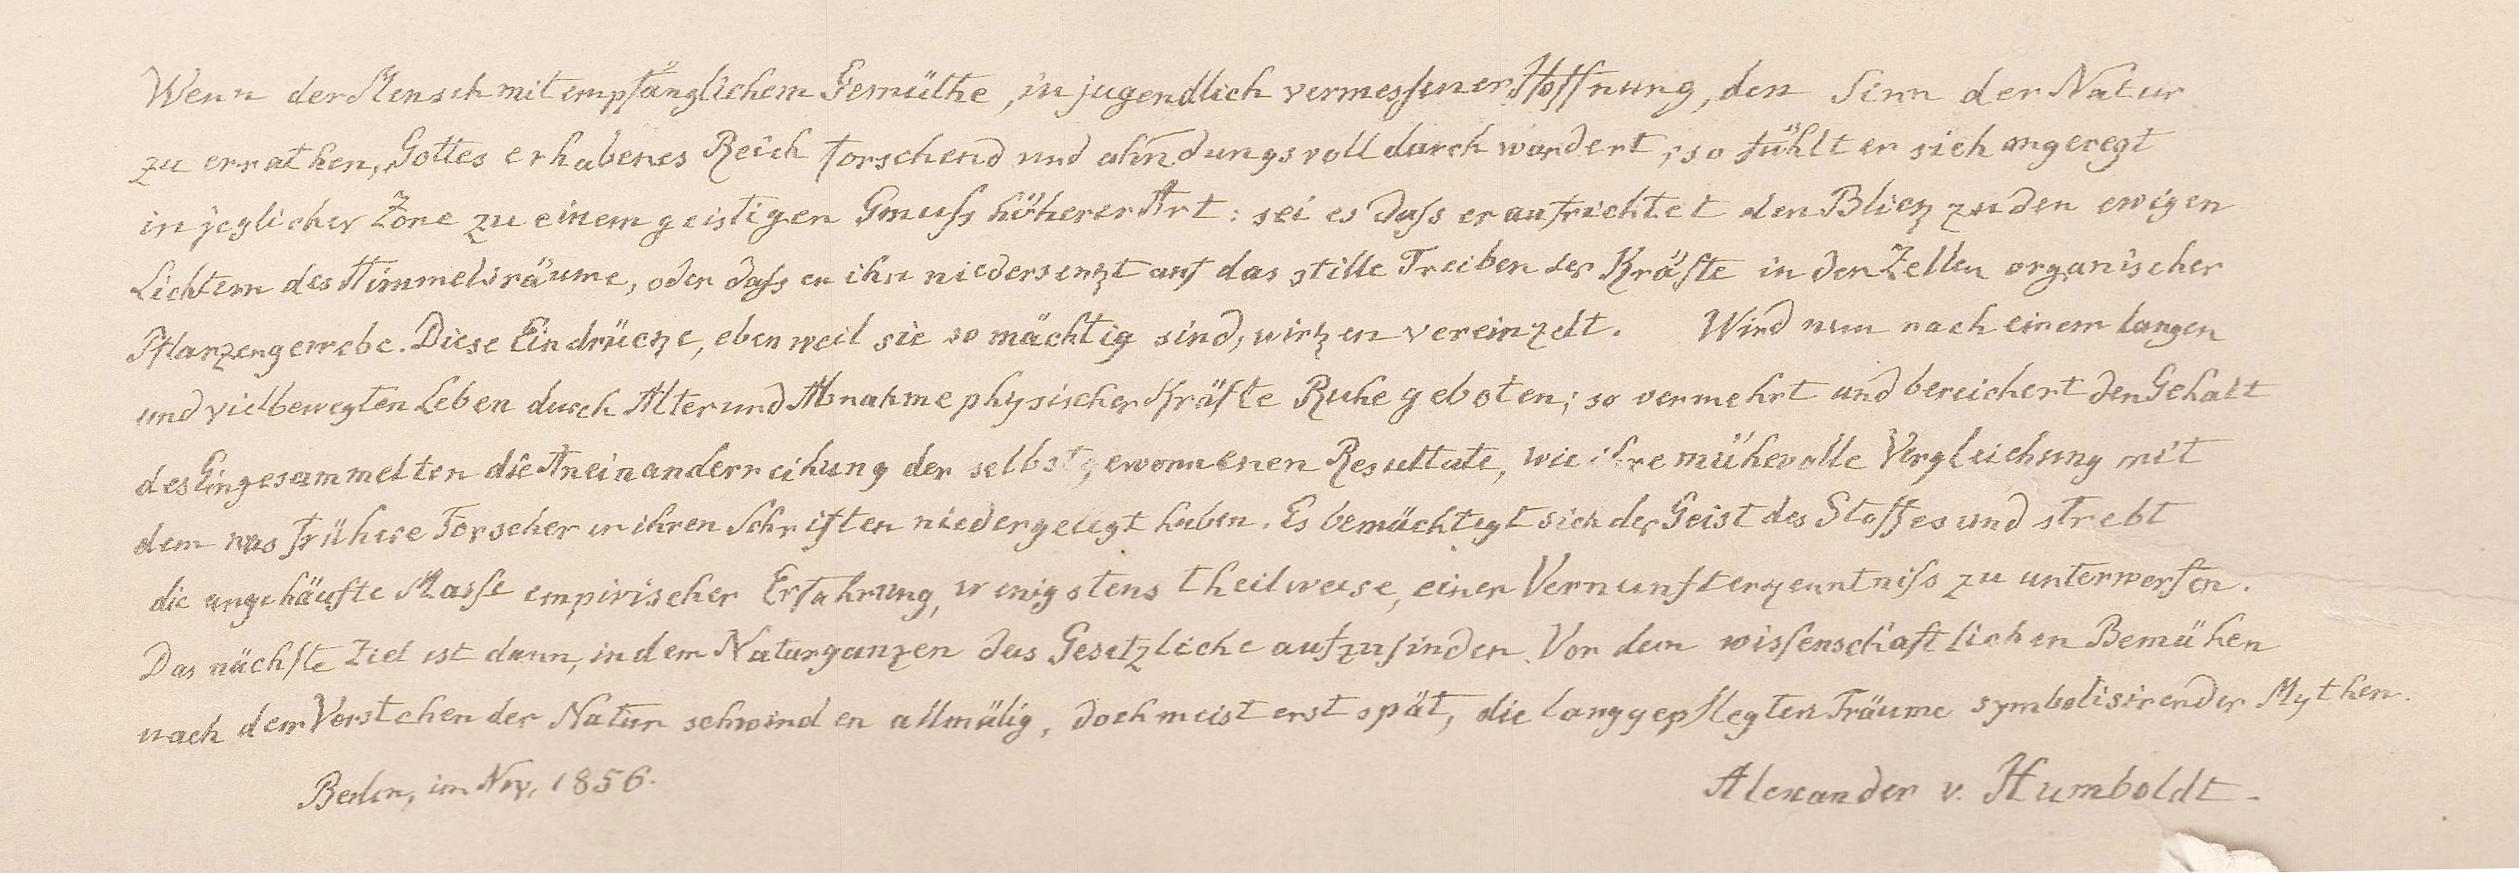 Wenn der Mensch mit empfänglichem Gemüthe, in jugendlich vermessener Hoffnung, den Sinn der Natur
zu errathen, Gottes erhabenes Reich forschend und ahndungsvoll durchwandert, so fühlt er sich angeregt
in jeglicher Zone zu einem geistigen Genuß höherer Art: sei es daß er aufrichtet den Blick zu den ewigen
Lichtern des Himmelsräume, oder daß er ihn niedersenkt auf das stille Treiben der Kräfte in den Zellen organischer
Pflanzengewebe. Diese Eindrücke, eben weil sie so mächtig sind, wirken vereinzelt. Wird nun nach einem langen
und vielbewegten Leben durch Alter und Abnahme physischer Kräfte Ruhe geboten; so vermehrt und bereichert den Gehalt
des Eingesammelten die Aneinanderreihung der selbstgewonnenen Resultate, wie ihre mühevolle Vergleichung mit
dem was frühere Forscher in ihren Schriften niedergelegt haben. Es bemächtigt sich der Geist des Stoffes und strebt
die angehäufte Masse empirischer Erfahrung, wenigstens theilweise, einer Vernunfterkenntniß zu unterwerfen.
Das nächste Ziel ist dann, in dem Naturganzen das Gesetzliche aufzufinden. Vor dem wissenschaftlichen Bemühen
nach dem Verstehen der Natur schwinden allmälig, doch meist erst spät, die langgepflegten Träume symbolisirender Mythen.
Berlin, im Nov. 1856.
Alexander v. Humboldt.